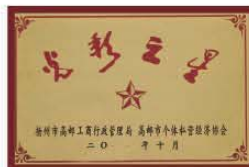 光彩之星
扬州市高邮工商行政管理局 高邮市个体私营经济协会
二〇 年十月